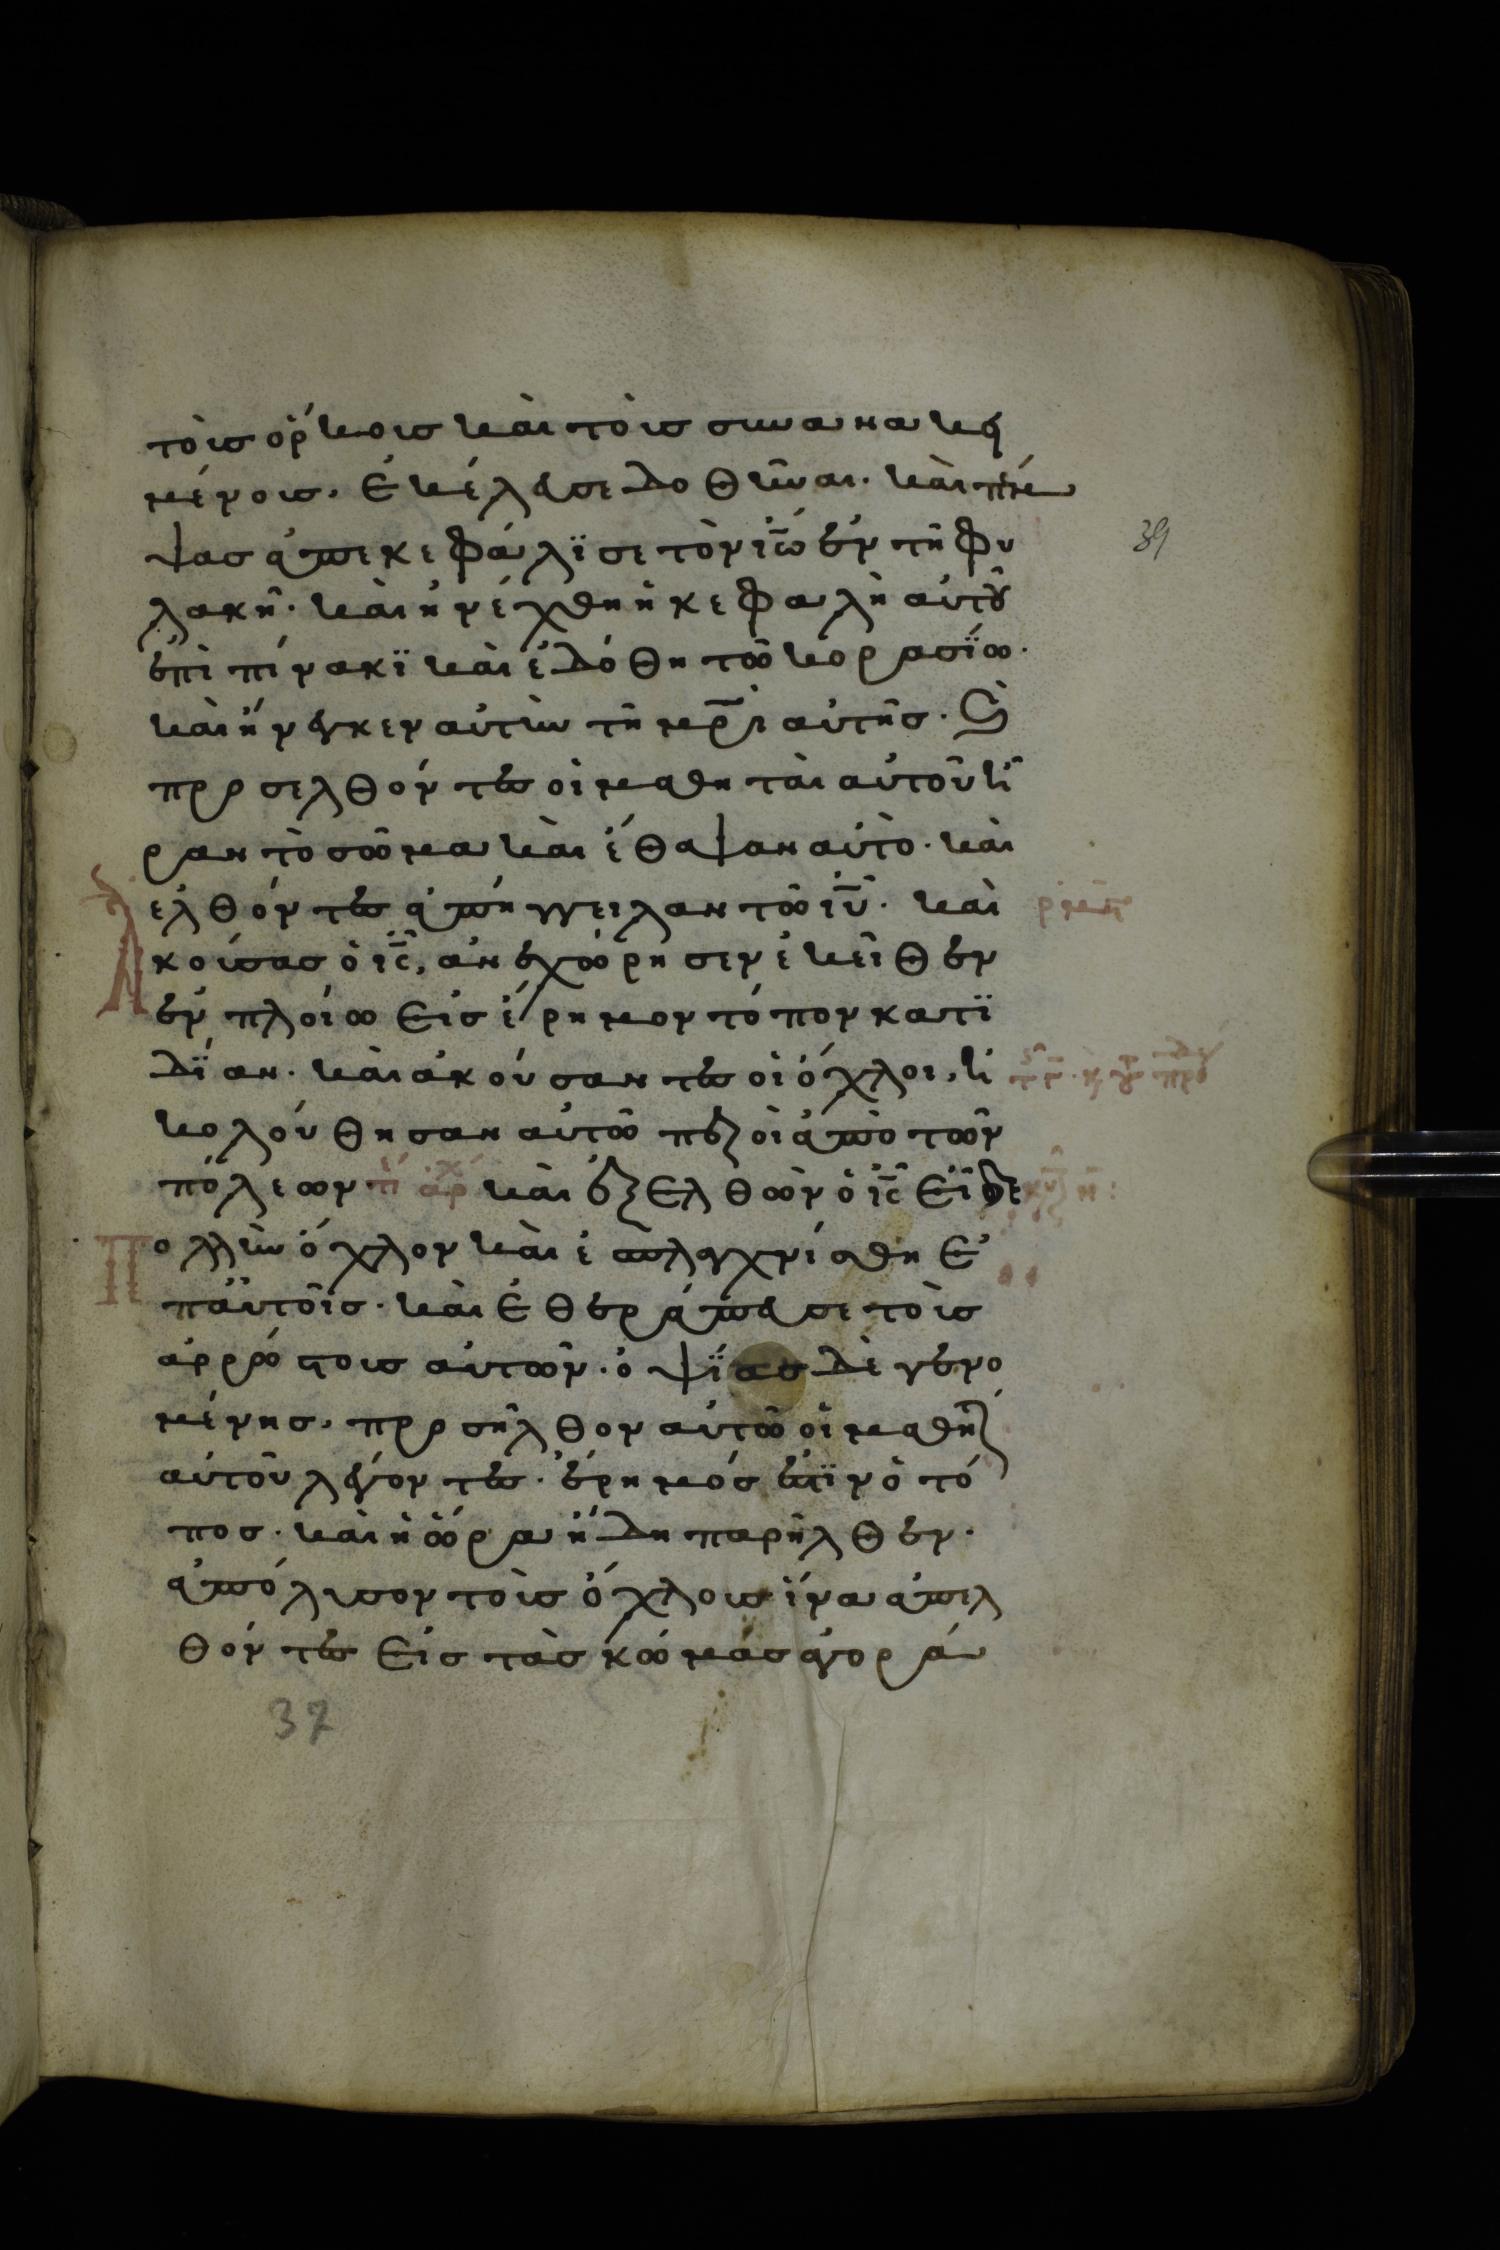 τοῖς ὅρκους καὶ τοὺς συνανακει
μένους. ἐκέλευσε δοθῆναι. καὶ πέμ
ψας ἀπεκεφάλϊσε τὸν ἰω̅ ἐν τῆ φυ
λακῆ. καὶ ἠνέχθη ἡ κεφαλὴ αὐτοῦ
ἐπὶ πίνακϊ καὶ ἐδόθη τῶ κορασΐω.
καὶ ἤνεγκεν αὐτὴν τῆ μρ̅ι αὐτῆς. καὶ
προσελθόντες οἱ μαθηταὶ αὐτοῦ ἦ
ραν τὸ σῶμα καὶ ἔθαψαν αὐτὸ. καὶ
ἐλθόντες ἀπήγγειλαν τῶ ιυ̅. καὶ
Ἀκούσας ὁ ις̅, ἀνεχώρησεν ἐκεῖθεν
ἐν πλοίω εἰς ἔρημον τόπον κατϊ
δΐαν. καὶ ἀκούσαντες οἱ ὄχλοι, ἠ
κολούθησαν αὐτῶ πεζοὶ ἀπὸ τῶν
πόλεων ἀρχ καὶ ἐξελθὼν ὁ ις̅ εἶδε
Πολλὺν ὄχλον καὶ ἐσπλαγχνίσθη ἐ
π αὐτοῖς. καὶ ἐθεράπευσε τοὺς
ἀρρώστους αὐτῶν. ὀψΐας δὲ γενο
μένης, προσῆλθον αὐτῶ οἱ μαθηταὶ
αὐτοῦ λέγοντες. ἔρημός ἐστϊν ὁ τό
πος. καὶ ἡ ὥρα ἤδη παρῆλθεν.
ἀπόλυσον τοὺς ὄχλους ἵνα ἀπελ
θόντες εἰς τὰς κώμας ἀγορά
39
37